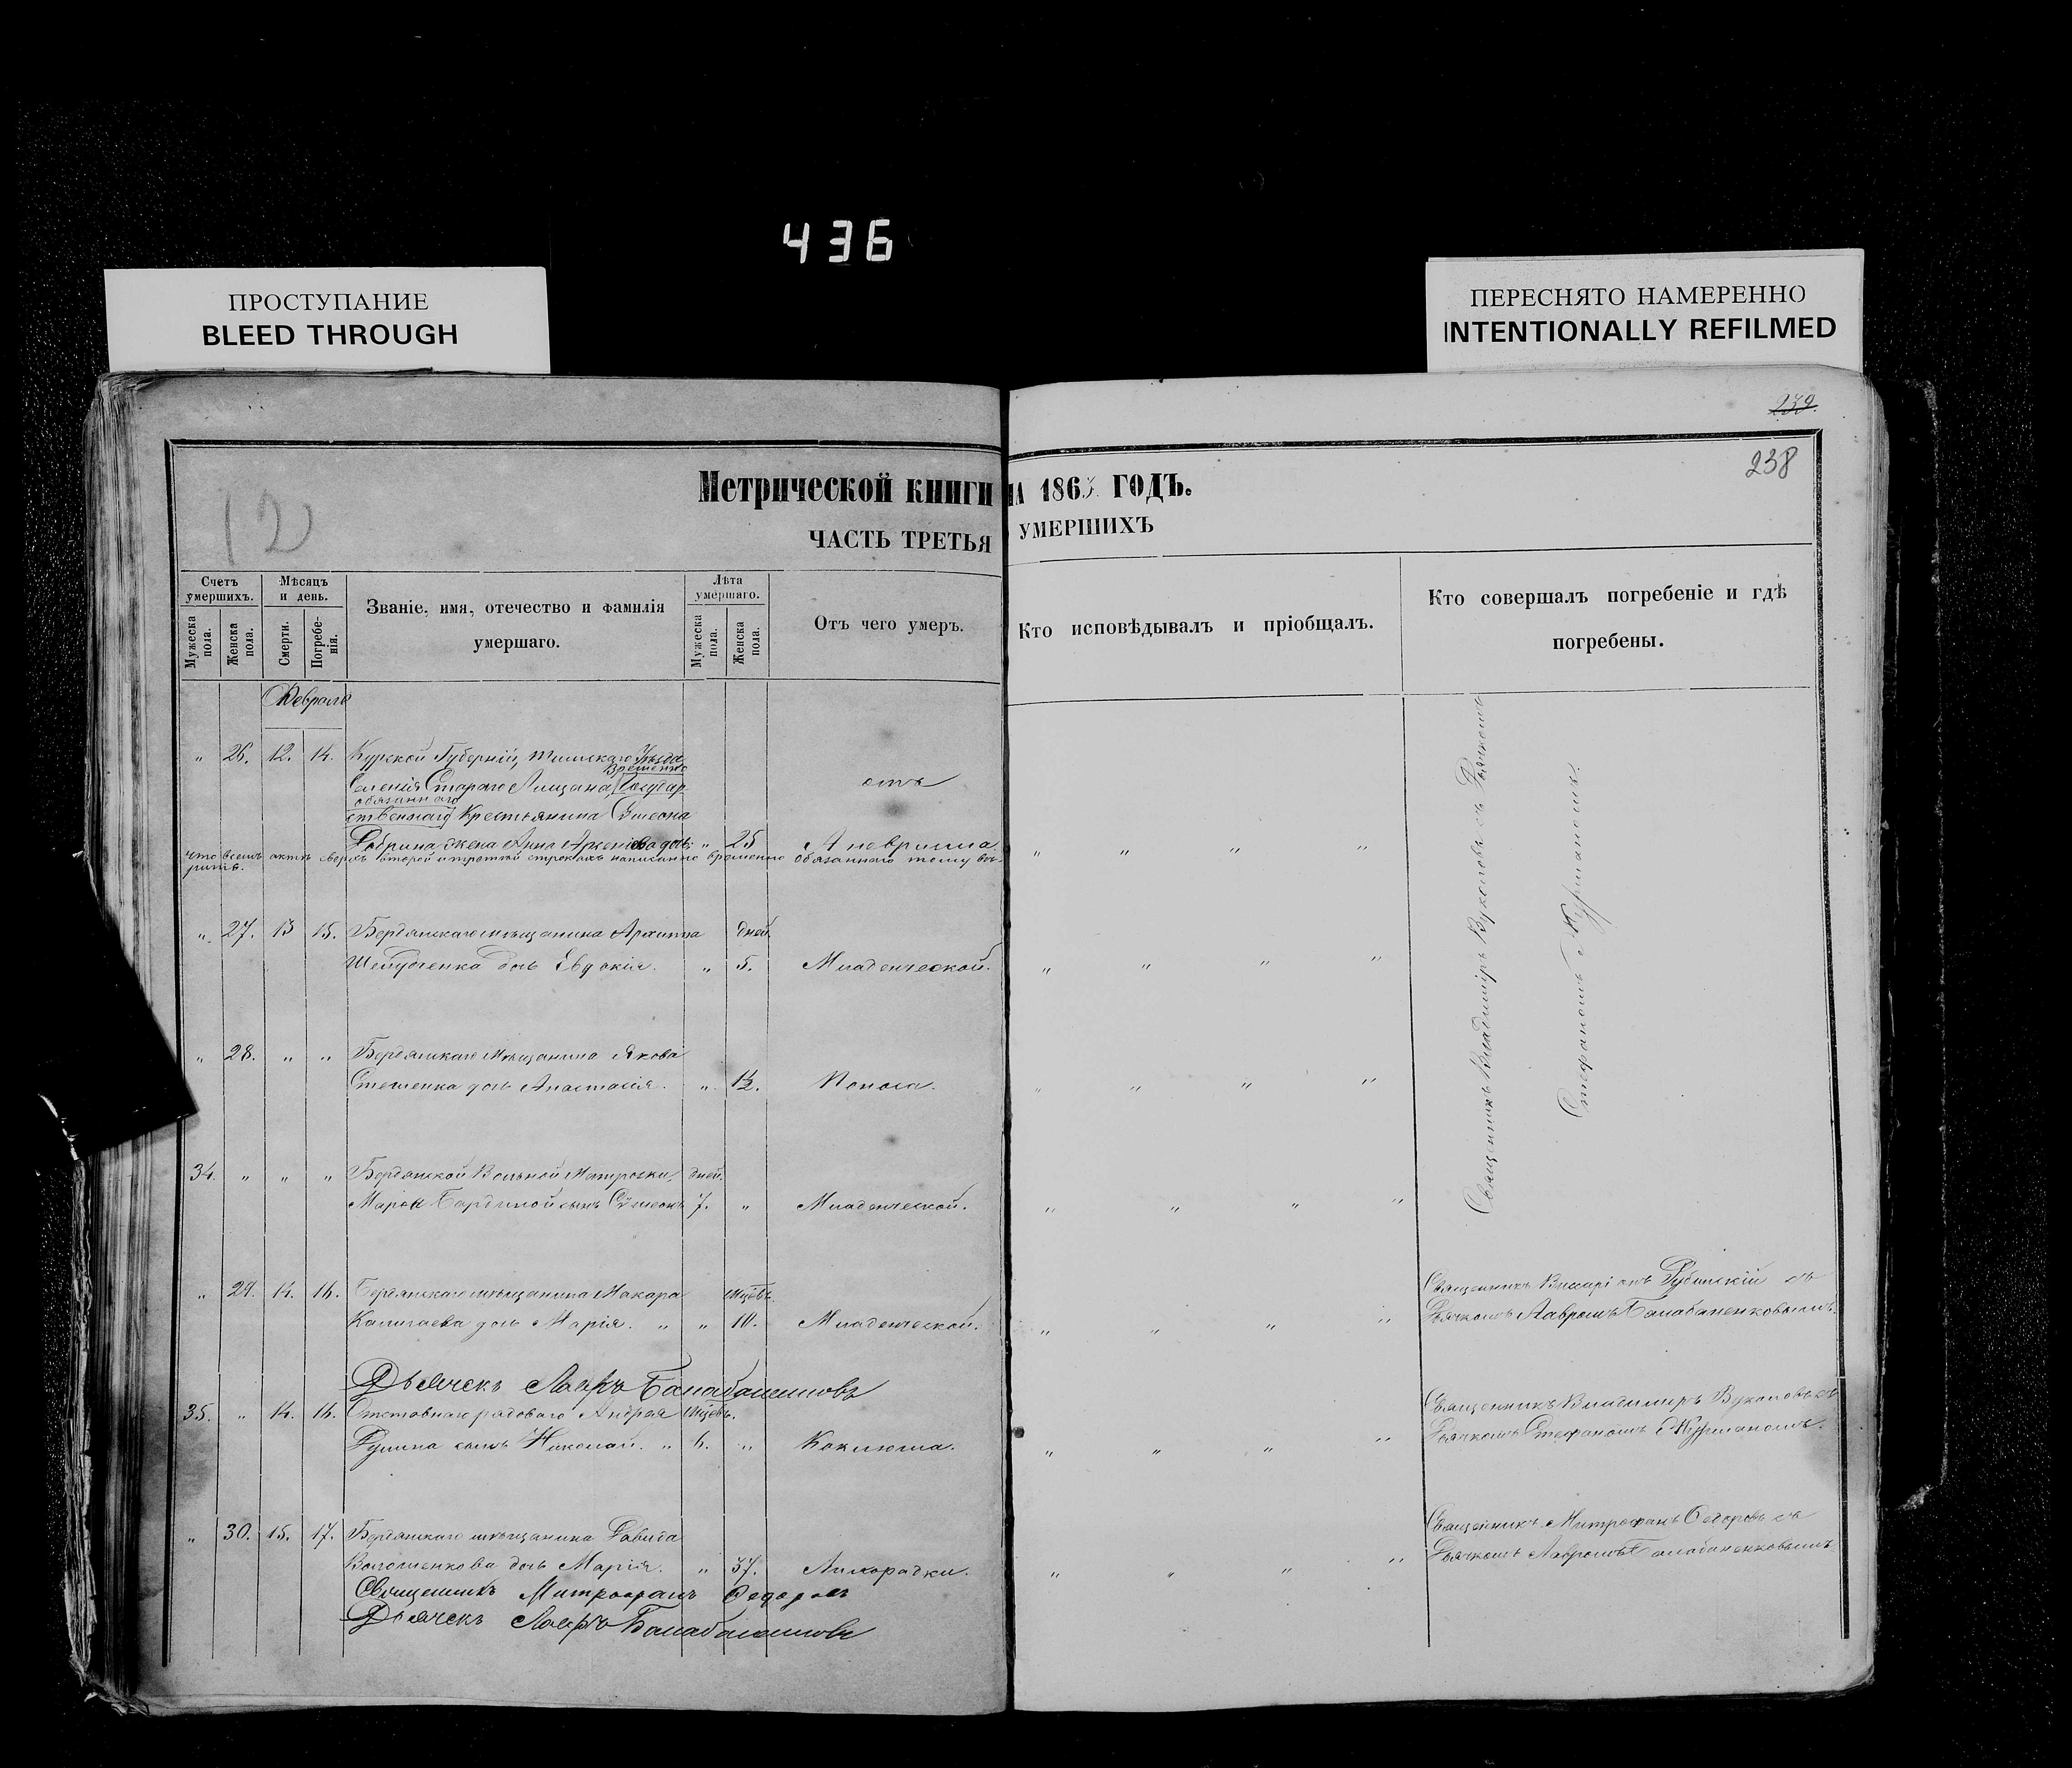 436
ПРОСТУПАНИЕ
BLEED THROUGH
ПЕРЕСНЯТО НАМЕРЕННО
INTENTIONALLY REFILMED
239.
238
12
Метрической книги НА 1863 ГОДЪ.
ЧАСТЬ ТРЕТЬЯ УМЕРШИХЪ
Счетъ умершихъ.
Мужеска пола.
Женска пола.
Мѣсяцъ и день.
Смерти.
Погребенія.
Званіе, имя, отечество и фамилія
умершаго.
Лѣта умершаго.
Мужеска пола.
Женска пола.
Отъ чего умеръ.
Кто исповѣдывалъ и пріобщалъ.
Кто совершалъ погребеніе и гдѣ
погребены.
Февраль
" 26. 12. 14. Курской Губерніи, Тимскаго Уѣзда
Временно
Селенія Стараго Лещана, Государ-
отъ
обязаннаго
ственнаго Крестьянина Симеона
жена Анна " 25 Аневризма. " " " "
что всемъ актѣ сверхъ второй и третьей строкахъ написанно временно обязаннаго тому вѣ-
рить.
" 27. 13 15. Бердянскаго мѣщанина Архиппа дней.
дочь Евдокія. " 5. Младенческой. " " " "
" 28. " " Бердянскаго Мѣщанина Якова
Стешенка дочь Анастасія. " 1½. Поноса. " " " "
34. " " " Бердянской Вольной Матроски, дней.
Маріи сынъ Симеонъ 7. " Младенческой. " " " "
Священникъ Владиміръ Вуколовъ съ Дьячкомъ
Стефаномъ Журманомъ.
" 29. 14. 16. Бердянскаго мѣщанина Макара мцовъ.
дочь Марія. " " 10. Младенческой. " " " "
Священникъ Рубинскій съ
Дьячкомъ Лавромъ Балабаненковымъ.
Дьячекъ Лавръ
35. " 14. 16. Отставнаго рядоваго Андрея мцовъ.
сынъ Николай. " 6. " Коклюша. " " " "
Священникъ Владиміръ Вуколовъ съ
Дьячкомъ Стефаномъ Журманомъ.
" 30. 15. 17. Бердянскаго мѣщанина Давида
Волошенкова дочь Марія. " 37. Лихорадки. " " " "
Священникъ Митрофанъ Федоровъ съ
Дьячкомъ Лавромъ Балабаненковымъ.
Священникъ Митрофанъ Федоровъ
Дьячекъ Лавръ